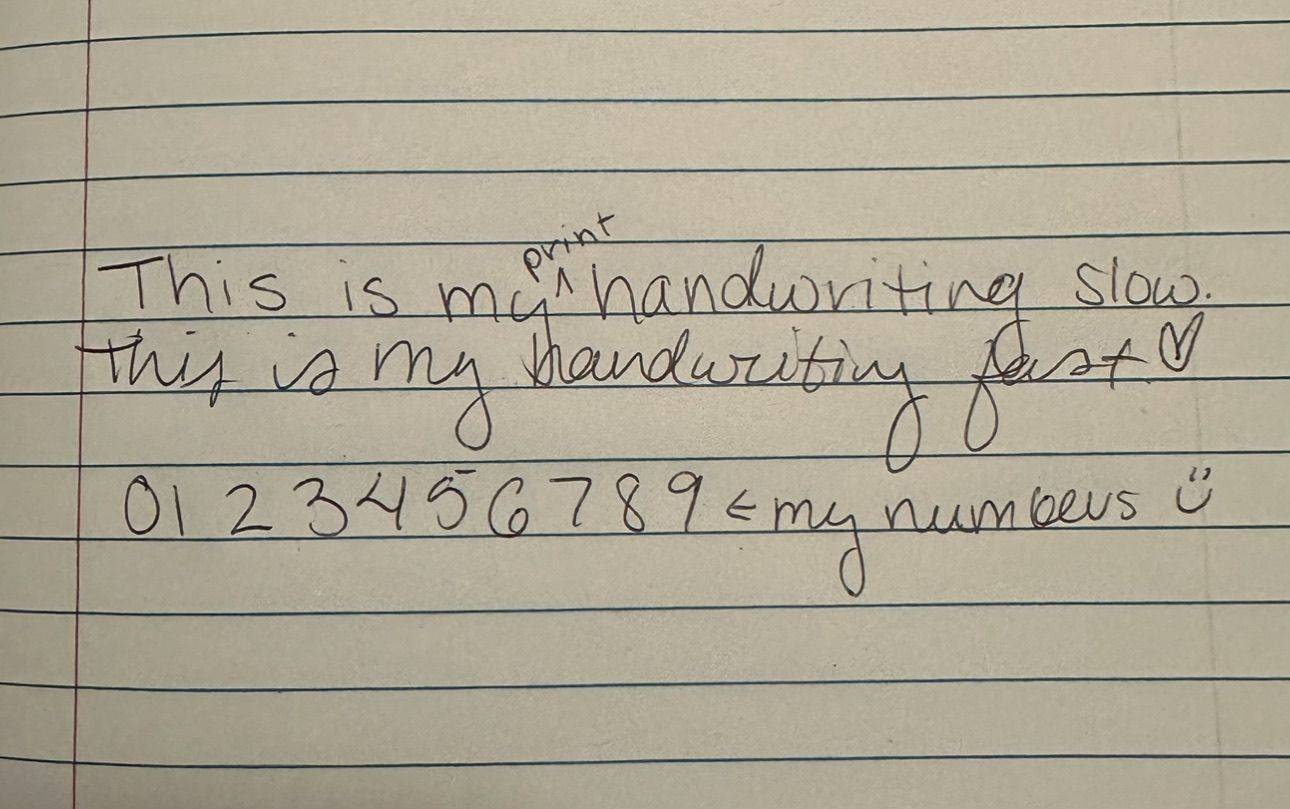 This is my print handwriting slow.
this is my handwriting fast ♡
0 1 2 3 4 5 6 7 8 9 ← my numbers :)